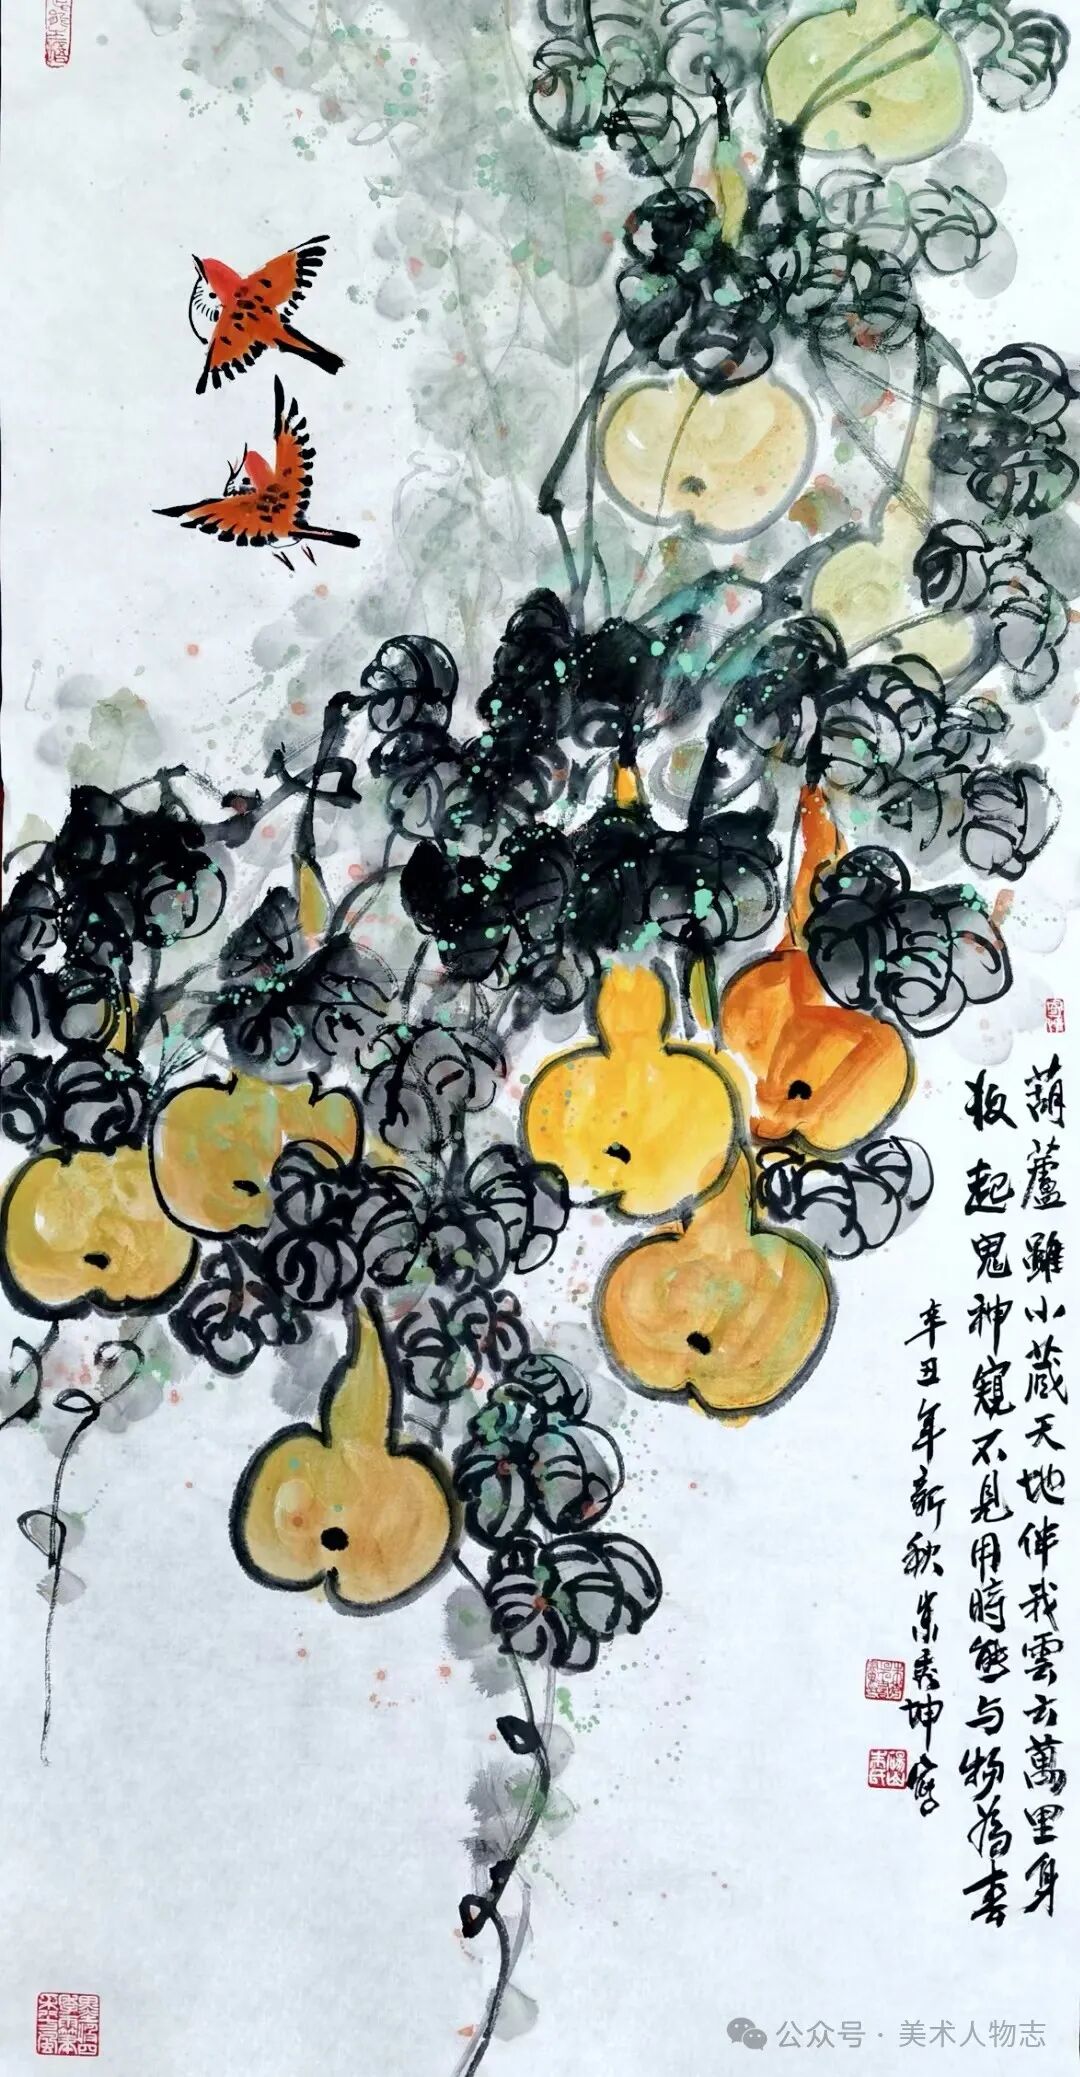 葫蘆雖小藏天地伴我雲云萬里身
收起鬼神窺不見用時能与物為春
辛丑年新秋朱秀坤寫
公众号 · 美术人物志